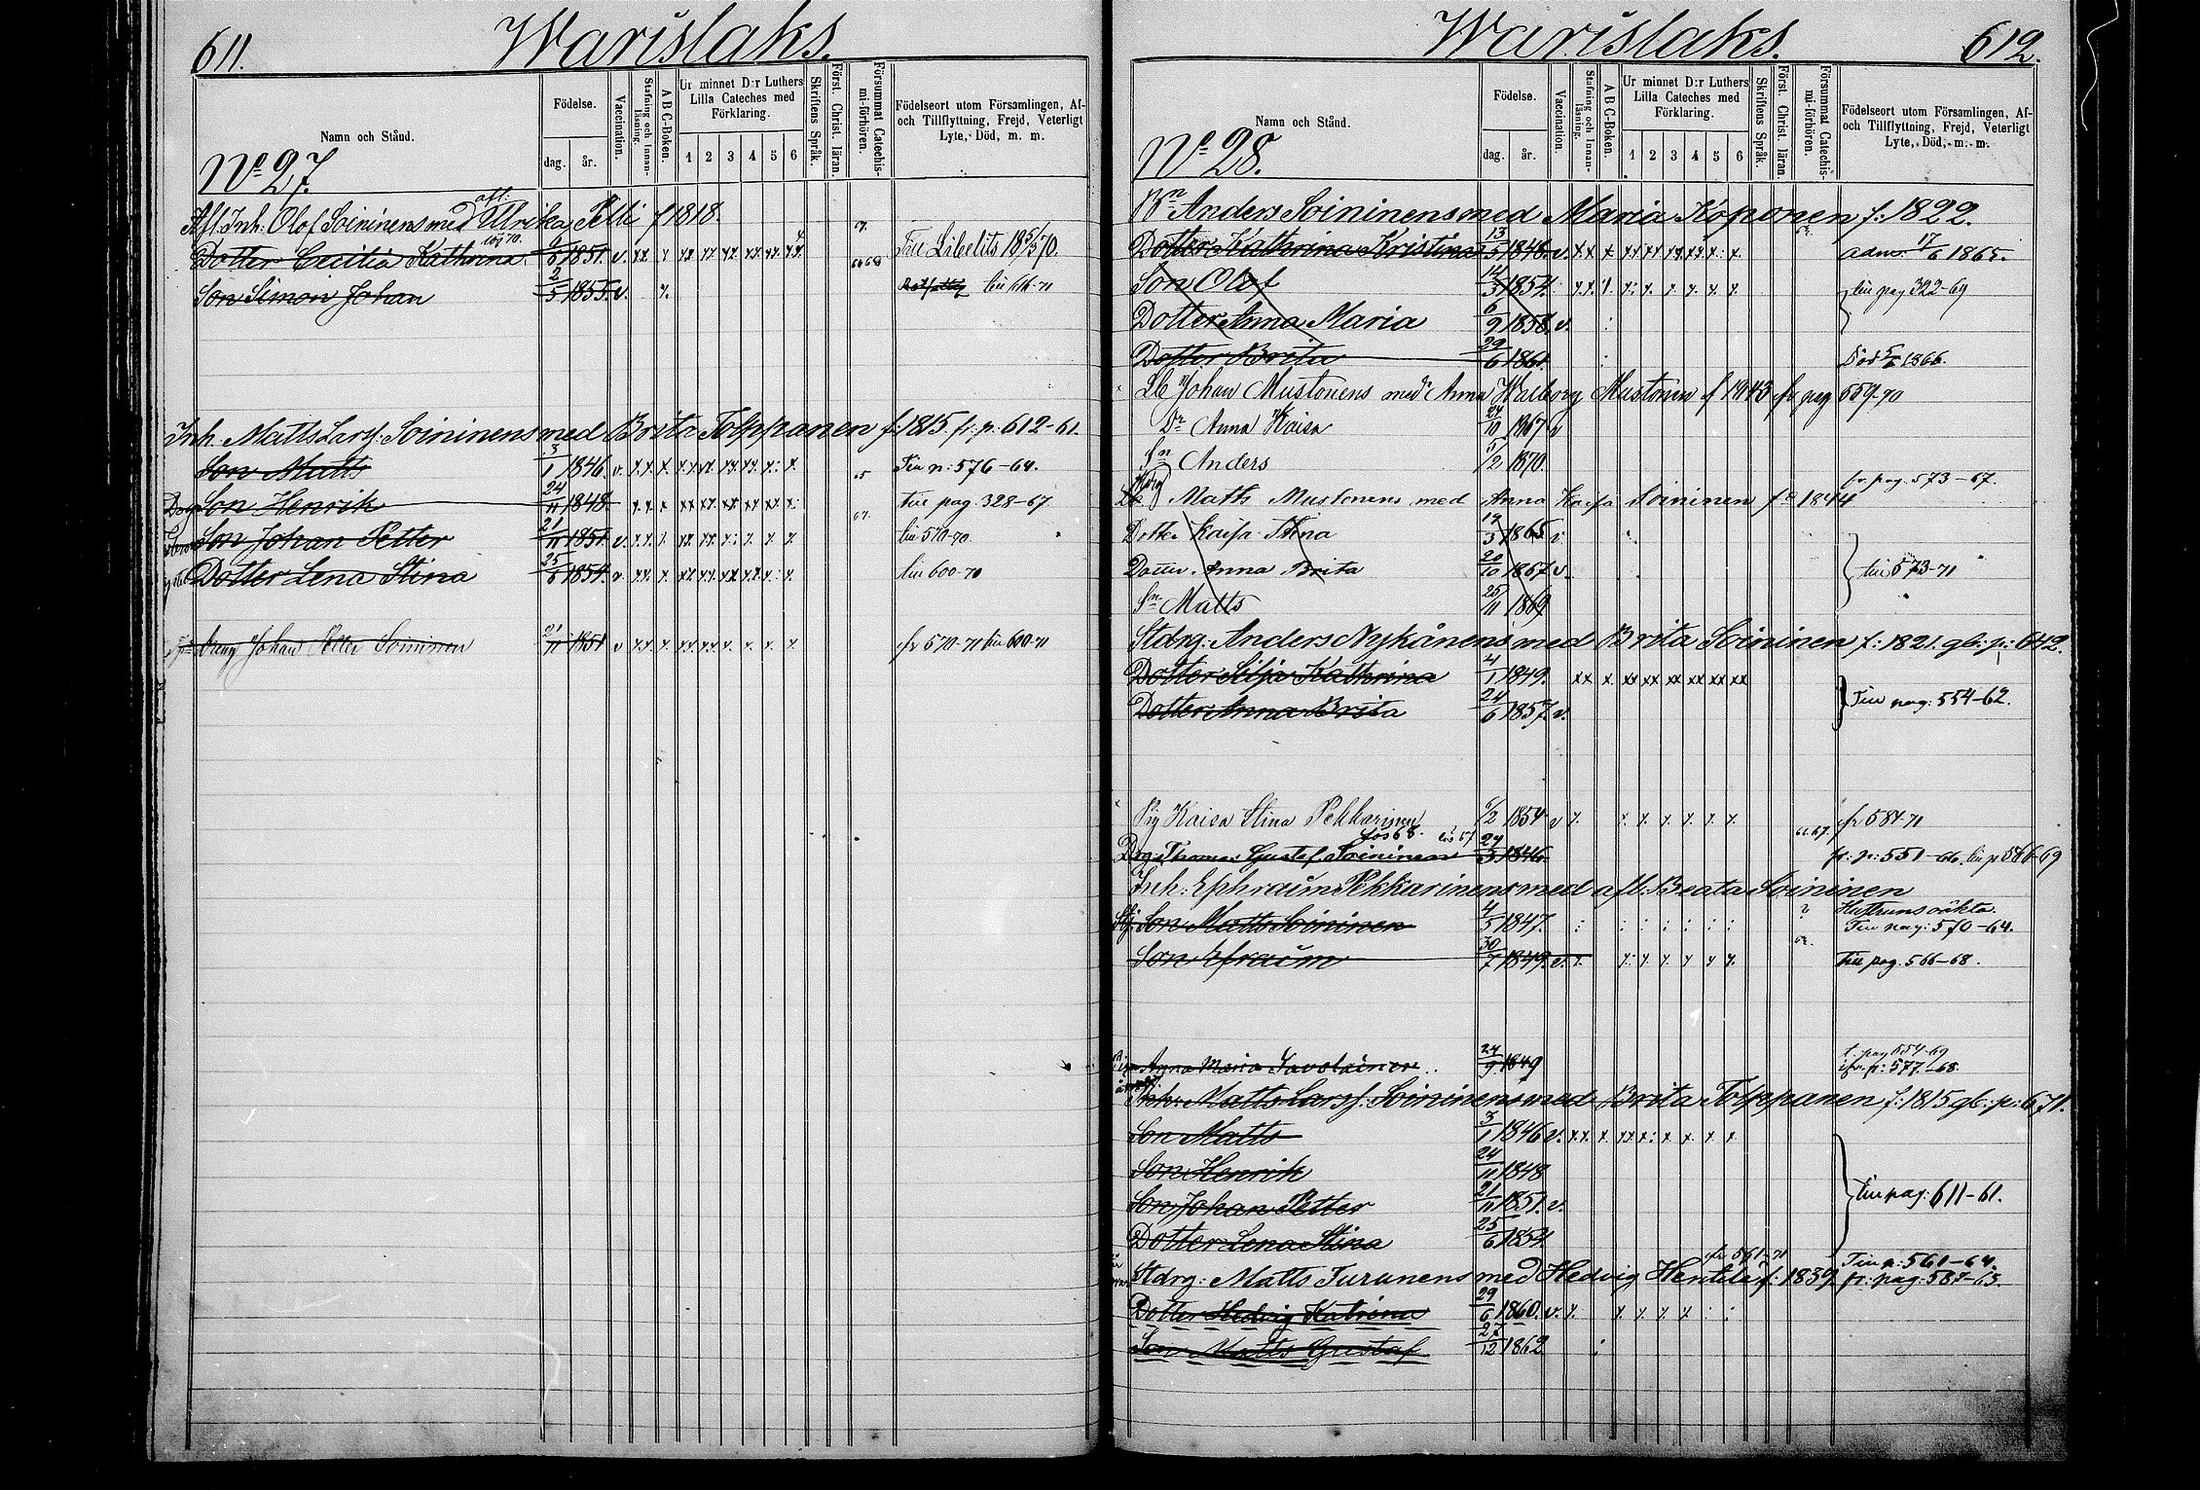 611.
Warislaks.
Namn och Stånd.
Födelse.
dag. år.
Vaccination.
Stafning och Innanläsning.
A B C-Boken.
Ur minnet D:r Luthers Lilla Cateches med Förklaring.
1 2 3 4 5 6
Skriftens Språk.
Först. Christ. läran.
Försummat Catechismi-förhören.
Födelseort utom Församlingen, Af- och Tillflyttning, Frejd, Veterligt Lyte, Död, m. m.
No 27.
Afl. Inh: Olof Soininens med afl. Ulrika Pelli f 1818.
Dotter Cecilia Kathrina 1851. v. Till Libelits 70.
Son Simon Johan 2/5 1855. v. till 616-71
Inh. Matts Larsf. Soininens med Brita Tolppanen f. 1815. fr. p: 612-61.
Son Matts 3/1 1846. v. Till p: 576-64.
Son Henrik 24/11 1848. till pag. 328-67
Son Johan Petter 21/11 1851. v. till 570-70
Dotter Lena Stina 25/6 1854. v till 600-70
Dreng Johan Petter Soininen 21/11 1851 v fr 570-71 till 600-71
Warislaks.
612.
Namn och Stånd.
Födelse.
dag. år.
Vaccination.
Stafning och Innanläsning.
A B C-Boken.
Ur minnet D:r Luthers Lilla Cateches med Förklaring.
1 2 3 4 5 6
Skriftens Språk.
Först. Christ. läran.
Försummat Catechismi-förhören.
Födelseort utom Församlingen, Af- och Tillflyttning, Frejd, Veterligt Lyte, Död, m. m.
No 28.
Bn Anders Soininens med Maria Koponen f: 1822.
Dotter Kathrina Kristina 13/5 1848. v. adm. 17/6 1865.
Son Olof 14/3 1854. till pag 322-69
Dotter Anna Maria 6/9 1858. v.
Dotter Brita 29/6 1861. Död 1866.
Johan Mustonens med Anna Walborg Mustonen f 1843 fr pag 559-70
Dr Anna Kaisa 24/10 1867 v
Sn Anders 5/2 1870.
fr. pag. 573-67.
Matts Mustonens med Anna Kaisa Soininen f. 1844
Dotter Kaisa Stina 19/3 1865 v
Dotter Anna Brita 20/10 1867 v. till 573-71
Sn Matts 25/11 1869
Stdrg: Anders Nykänens med Brita Soininen f: 1821. gb: p: 642.
Dotter Silja Kathrina 4/1 1849.
Dotter Anna Brita 24/6 1857. v. Till pag: 554-62.
Pig Kaisa Stina Pekkarinen 6/2 1854 v fr 584-71
Drg Thomas Gustaf Soininen 1846 fr: p: 551-66. till p 566-69
Inh: Ephraim Pekkarinens med afl: Beata Soininen
Son Matts Soininen 4/5 1847. Hustruns oäkta.
Till pag: 570-64.
Son Efraim 30/7 1849. v. Till pag. 566-68.
t. pag 554-69
Anna Maria Savolainen 24/9 1849 ifr. p: 577-68.
Inh: Matts Larsf. Soininens med Brita Tolppanen f: 1815 gb: p: 671.
Son Matts 3/1 1846 v.
Son Henrik 24/11 1848
Son Johan Petter 21/11 1851. v. till pag: 611-61.
Dotter Lena Stina 25/6 1854.
fr 561-71 Till p: 561-64.
Stdrg: Matts Turunens med Hedvig f: 1839 fr: pag: 587-63.
Dotter Hedvig Katrina 29/6 1860. v.
Son Matts Gustaf 27/12 1862